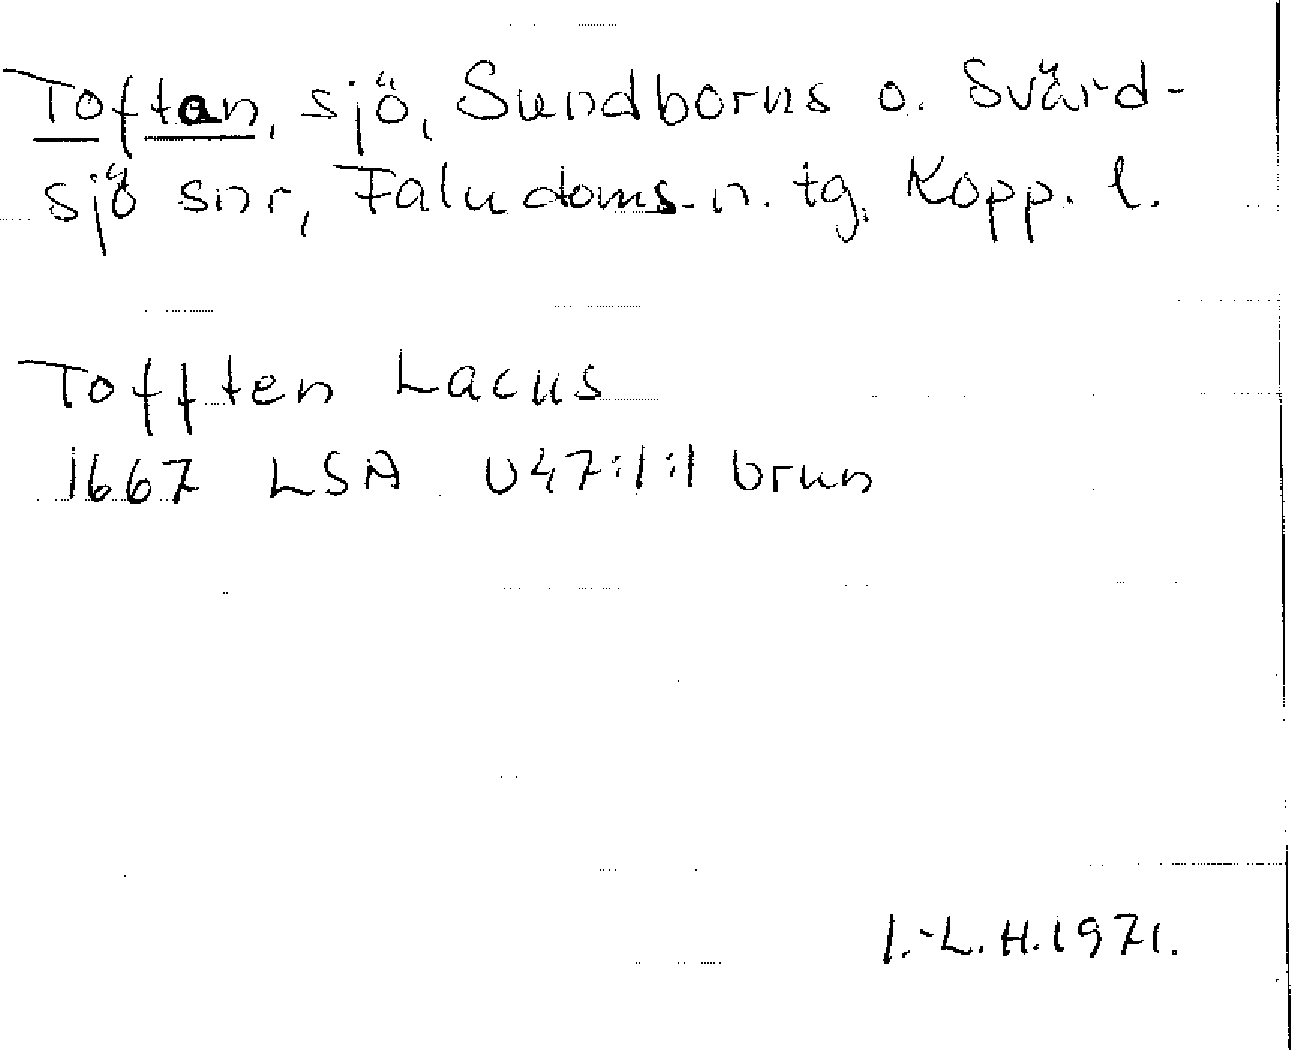 Toftan, sjö, Sundborns o. Svärd-
sjö snr, Falu doms.n. tg. Kopp. l.
Tofften Lacus
1667 LSA U47:1:1 brun
I.-L. H. 1971.